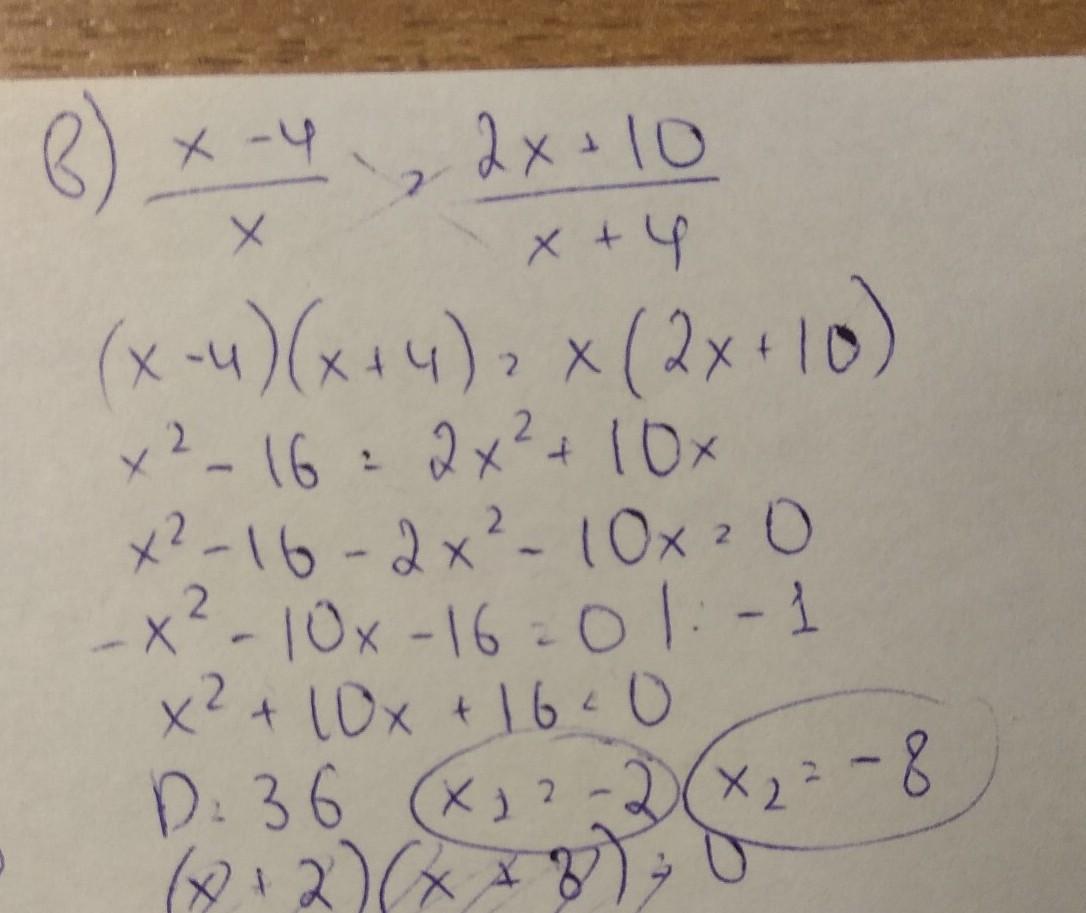 в) x - 4 / x = 2x + 10 / x + 4
(x - 4)(x + 4) = x(2x + 10)
x² - 16 = 2x² + 10x
x² - 16 - 2x² - 10x = 0
-x² - 10x - 16 = 0 | : -1
x² + 10x + 16 = 0
D = 36 x₁ = -2 x₂ = -8
(x + 2)(x + 8) = 0